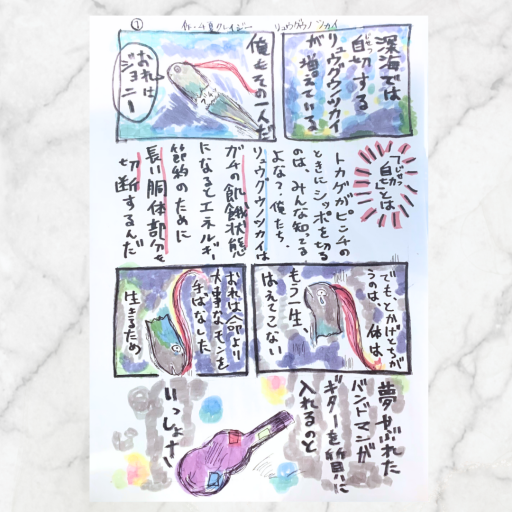 ①
リュウグウノツカイ
深海では
自切する
じせつ
リュウグウノツカイ
が増えている。
俺もその一人だ
おれは
ジョニー
「自切」とは
じせつ
トカゲがピンチの
ときにシッポを切る
のは、みんな知ってる
よな・俺たち、
リュウグウノツカイは
ガチの飢餓状態
になるとエネルギー
節約のために
長い胴体部分を
切断するんだ
でも、とかげとちが
うのは、体は、
もう一生、
はえてこない
おれは命より
大事なモンを
手ばなした
生きるため
夢やぶれた
バンドマンが
ギターを質に
入れるのと
いっしょさ